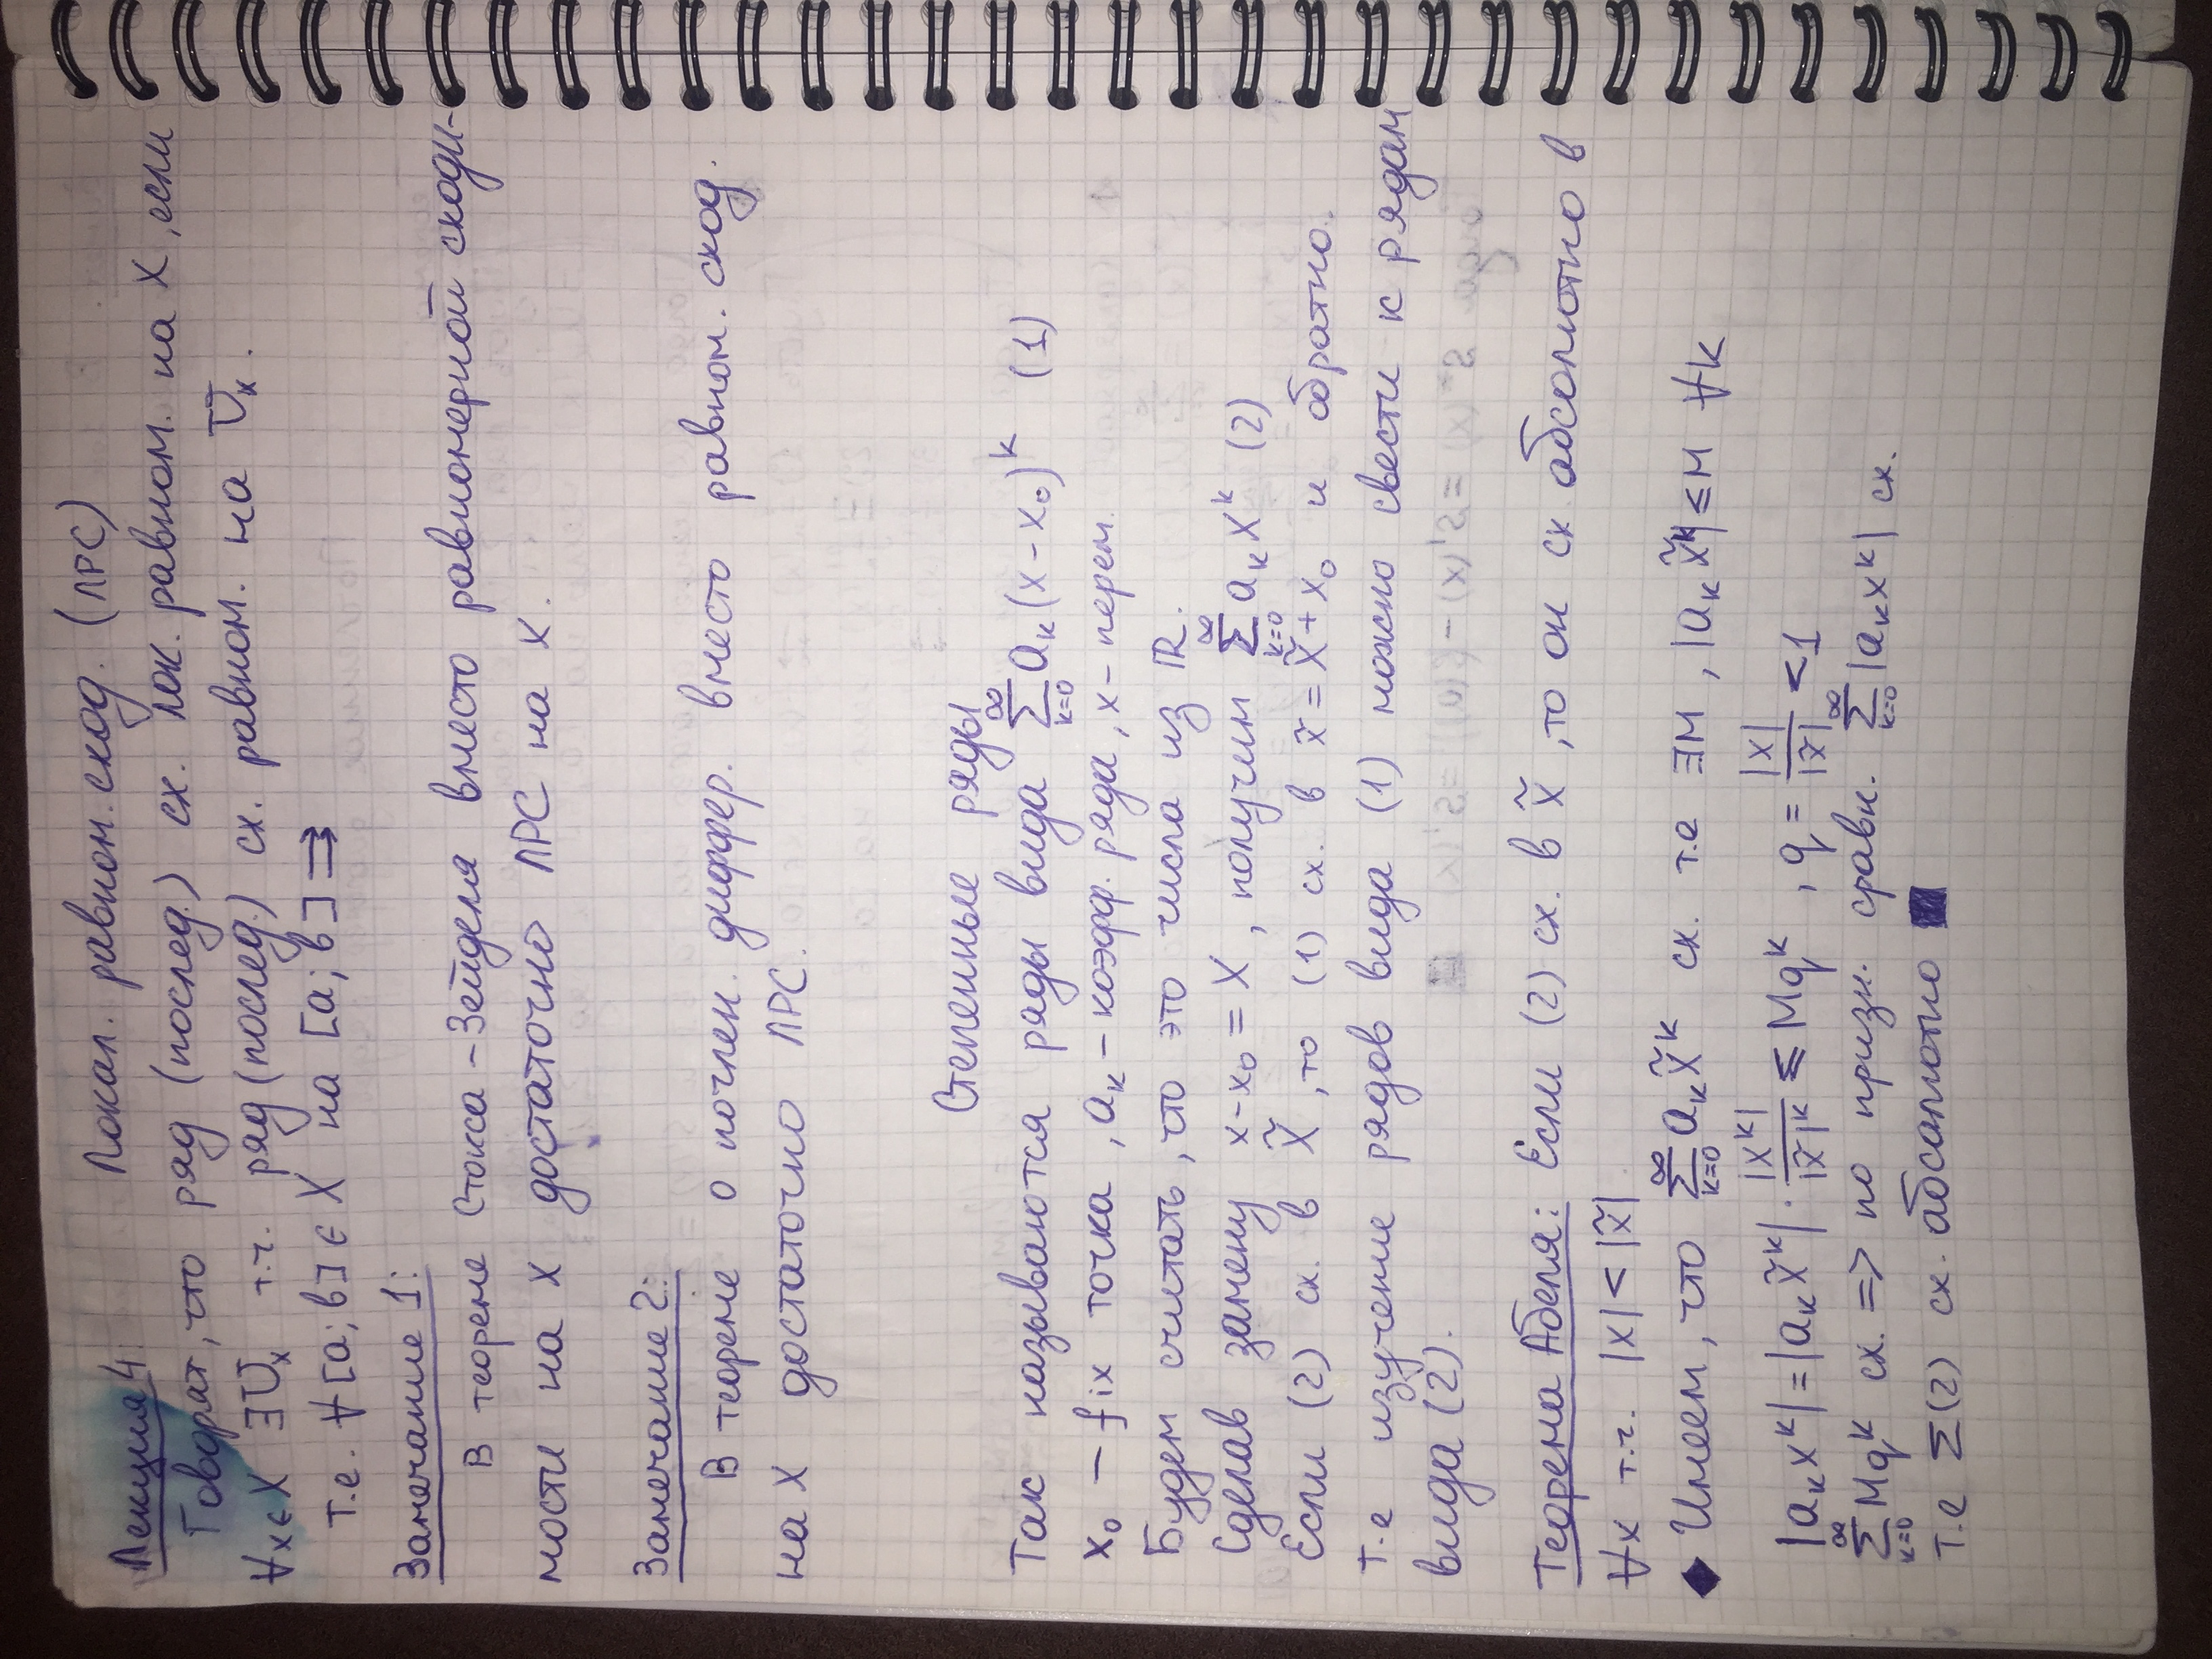 Локал. равном. сход. (ЛРС)
Лекция 4:
Говорят, что ряд (послед.) сх. лок. равном. на X, если
∀x∈X ∃Uₓ т.ч. ряд (послед.) сх. равном. на Uₓ.
т.е. ∀[a; b]∈X на [a; b] ⇉
Замечание 1:
В теореме Стокса-Зейделя вместо равномерной сходи-
мости на X достаточно ЛРС на X.
Замечание 2:
В теореме о почлен. диффер. вместо равном. сход.
на X достаточно ЛРС.
Степенные ряды
Так называются ряды вида ∑_{k=0}^{∞} aₖ(x-x₀)^k (1)
x₀ - fix точка, aₖ - коэфф. ряда, x - перем.
Будем считать, что это числа из ℝ.
Сделав замену x-x₀ = X, получим ∑_{k=0}^{∞} aₖX^k (2)
Если (2) сх. в X̃, то (1) сх. в x̃ = X̃ + x₀ и обратно.
т.е изучение рядов вида (1) можно свести к рядам
вида (2).
Теорема Абеля: Если (2) сх. в x̃, то он сх абсолютно в
∀x т.ч. |x| < |x̃|
◆ Имеем, что ∑_{k=0}^{∞} aₖx̃^k сх. т.е ∃M, |aₖx̃^k| ≤ M ∀k
|aₖx^k| = |aₖx̃^k| · |x^k|/|x̃|^k ≤ Mq^k, q = |x|/|x̃| < 1
∑_{k=0}^{∞} Mq^k сх. => по призн. сравн. ∑_{k=0}^{∞} |aₖx^k| сх.
т.е ∑(2) сх. абсолютно ■